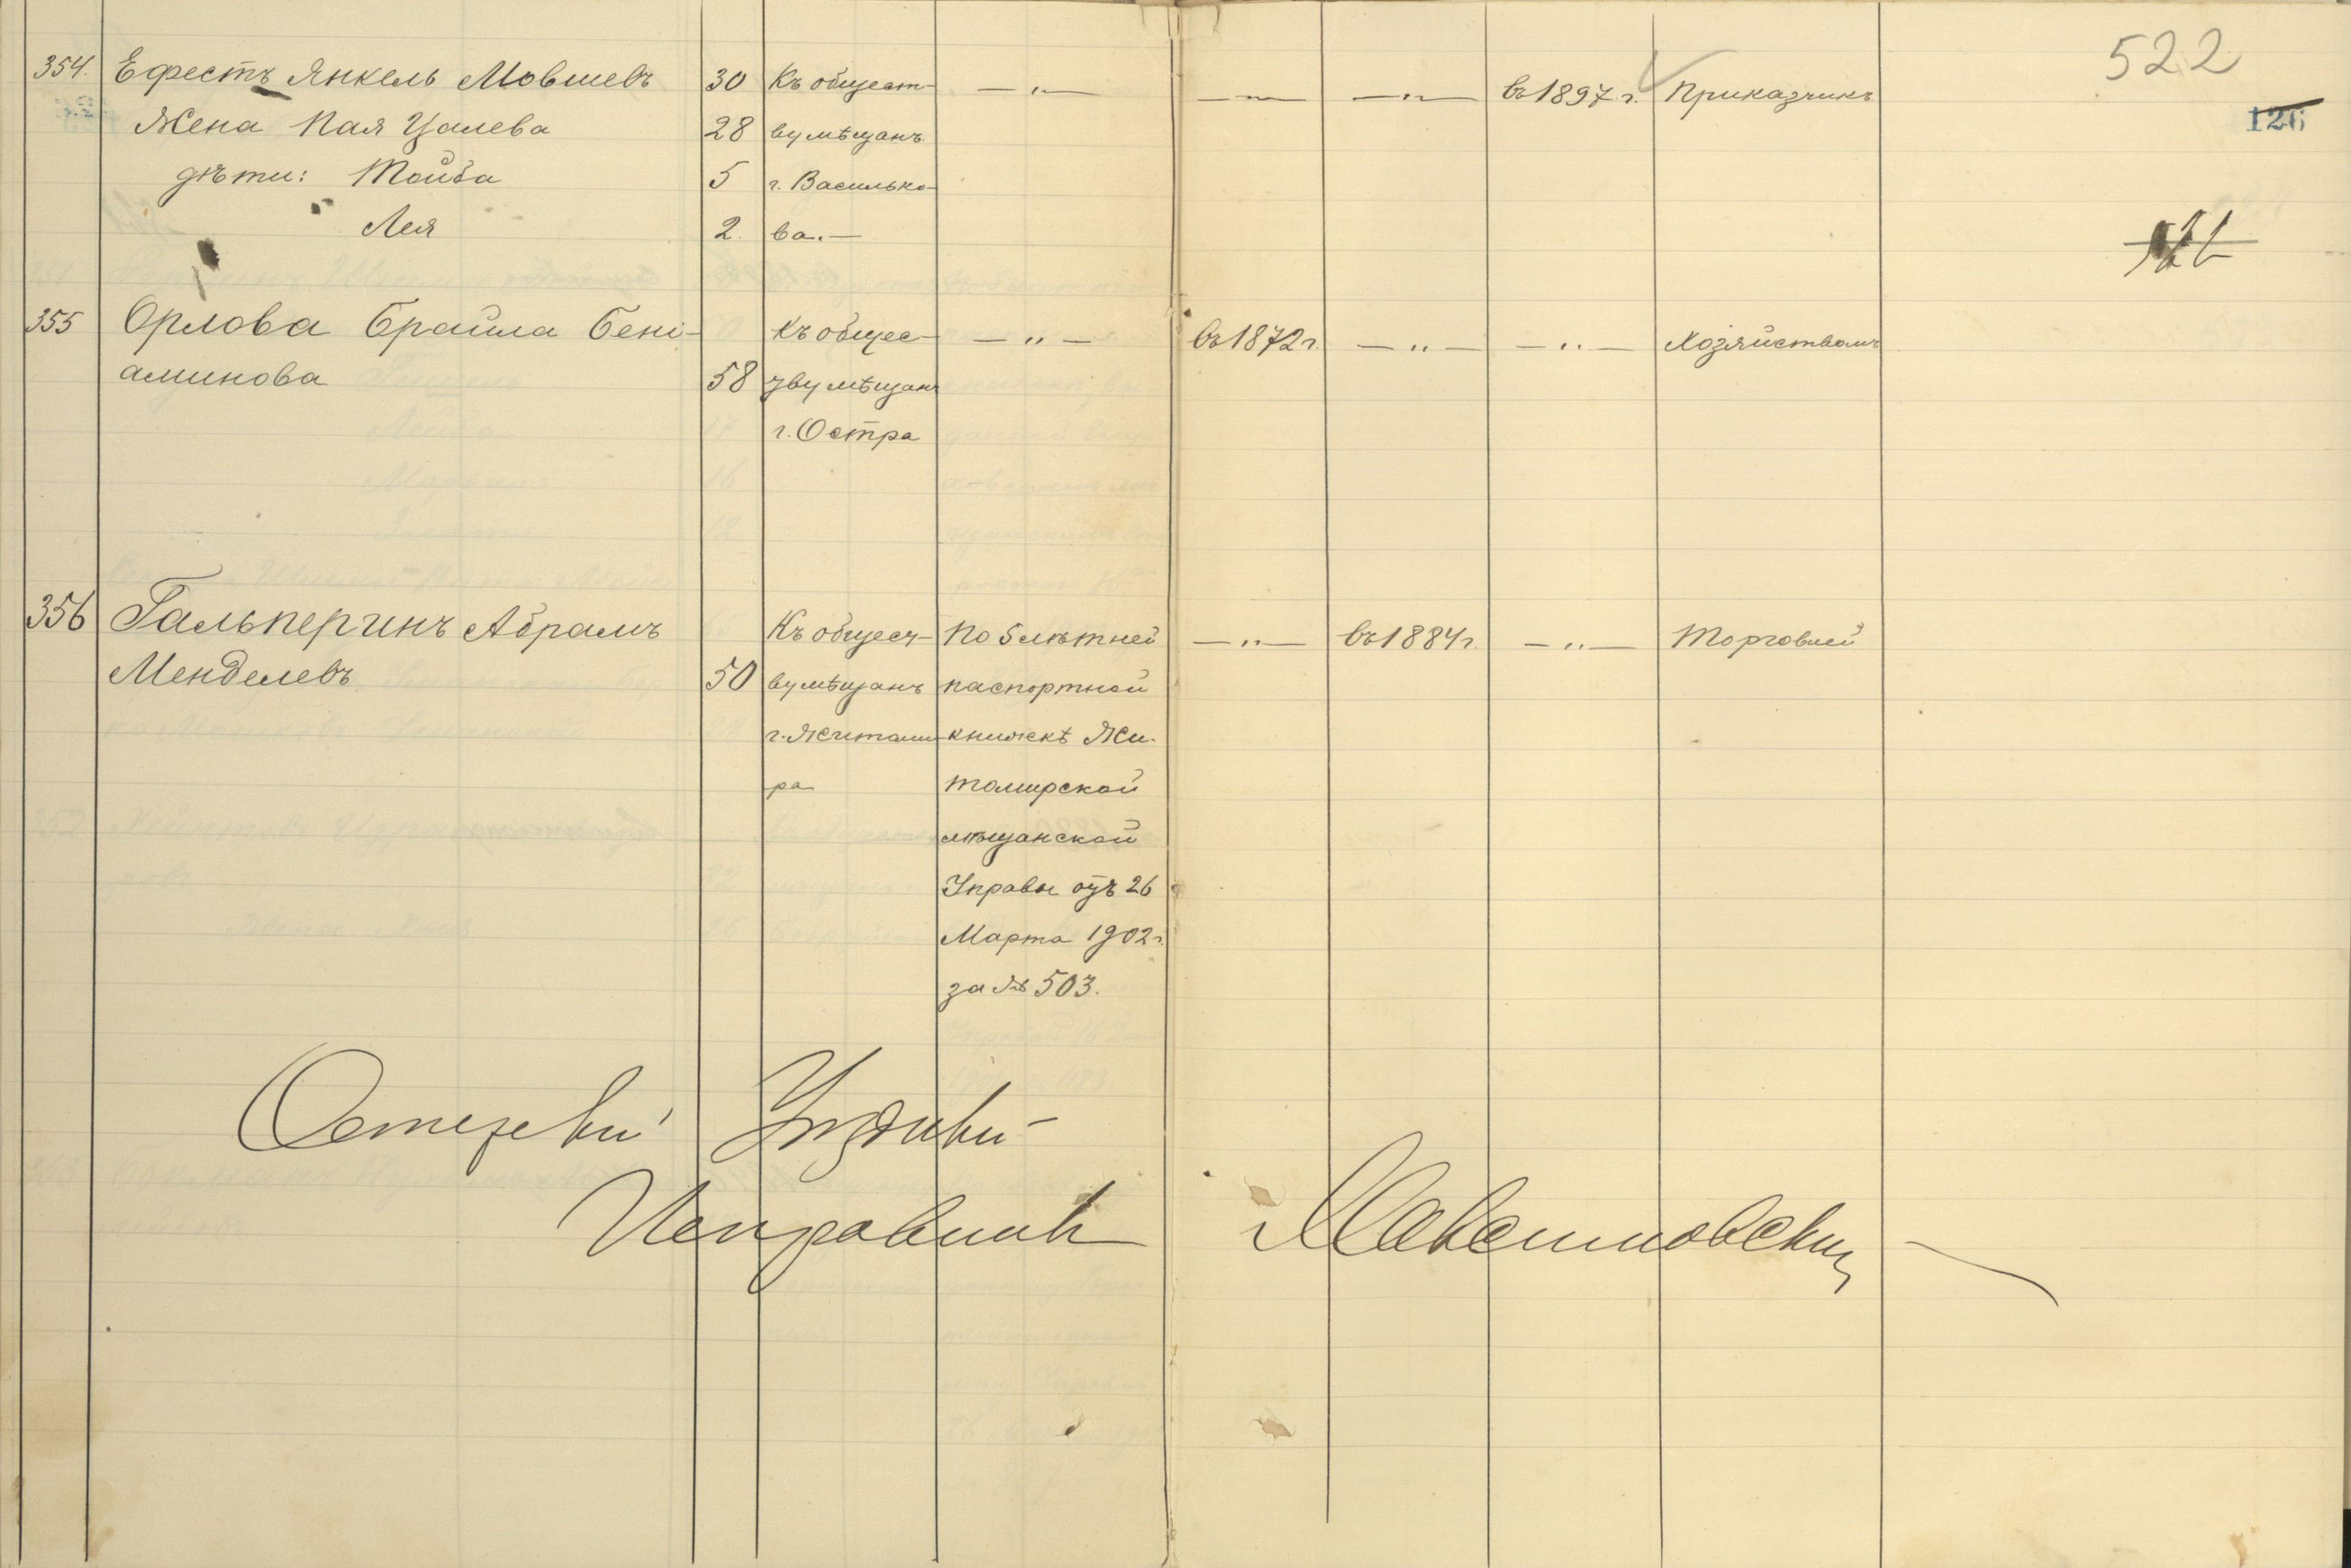 522
126
354. Ефестъ Янкель Мовшевъ 30 Къ общест- — „ — — „ — — „ — въ 1897 г. Приказчикъ
Жена Пая Цалева 28 ву мѣщанъ
дѣти: Тойба 5 г. Василько-
Лея 2. ва.—
355 Орлова Брайла Бені- Къ общес- — „ — въ 1872 г. — „ — — „ — Хозяйствомъ
аминова 58 тву мѣщанъ
г. Остра
356 Гальперинъ Абрамъ Къ общест- По 5 лѣтней — „ — въ 1884 г. — „ — Торговлей
Менделевъ 50 ву мѣщанъ паспортной
г. Житоми- книжкѣ Жи-
ра томирской
мѣщанской
Управы отъ 26
Марта 1902 г.
за № 503.
Остерскій Уѣздный
Исправникъ Максимовскій